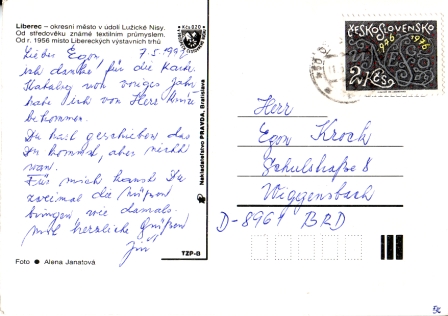 Liberec – okresní město v údolí Lužické Nisy.
Od středověku známé textilním průmyslem.
Od r. 1956 místo Libereckých výstavních trhů
Kčs 0,20
Lieber Egon 7.5.1997
ich danke für die Karte.
Katalog von voriges Jahr
habe ich von Herr
bekommen.
Du hast geschrieben das
Du kommst, aber nichht
war.
Für mich kanst Du
zweimal die
bringen wie damals.
mit herzliche Grüßen
Jiří
Foto ● Alena Janatová
TZP-B
Nakladatelství PRAVDA, Bratislava
ČESKOSLOVENSKO
1946 1976
2 Kčs
Herr
Egon Kroch
Schulstraße 8
Wiggensbach
D-8961 BRD